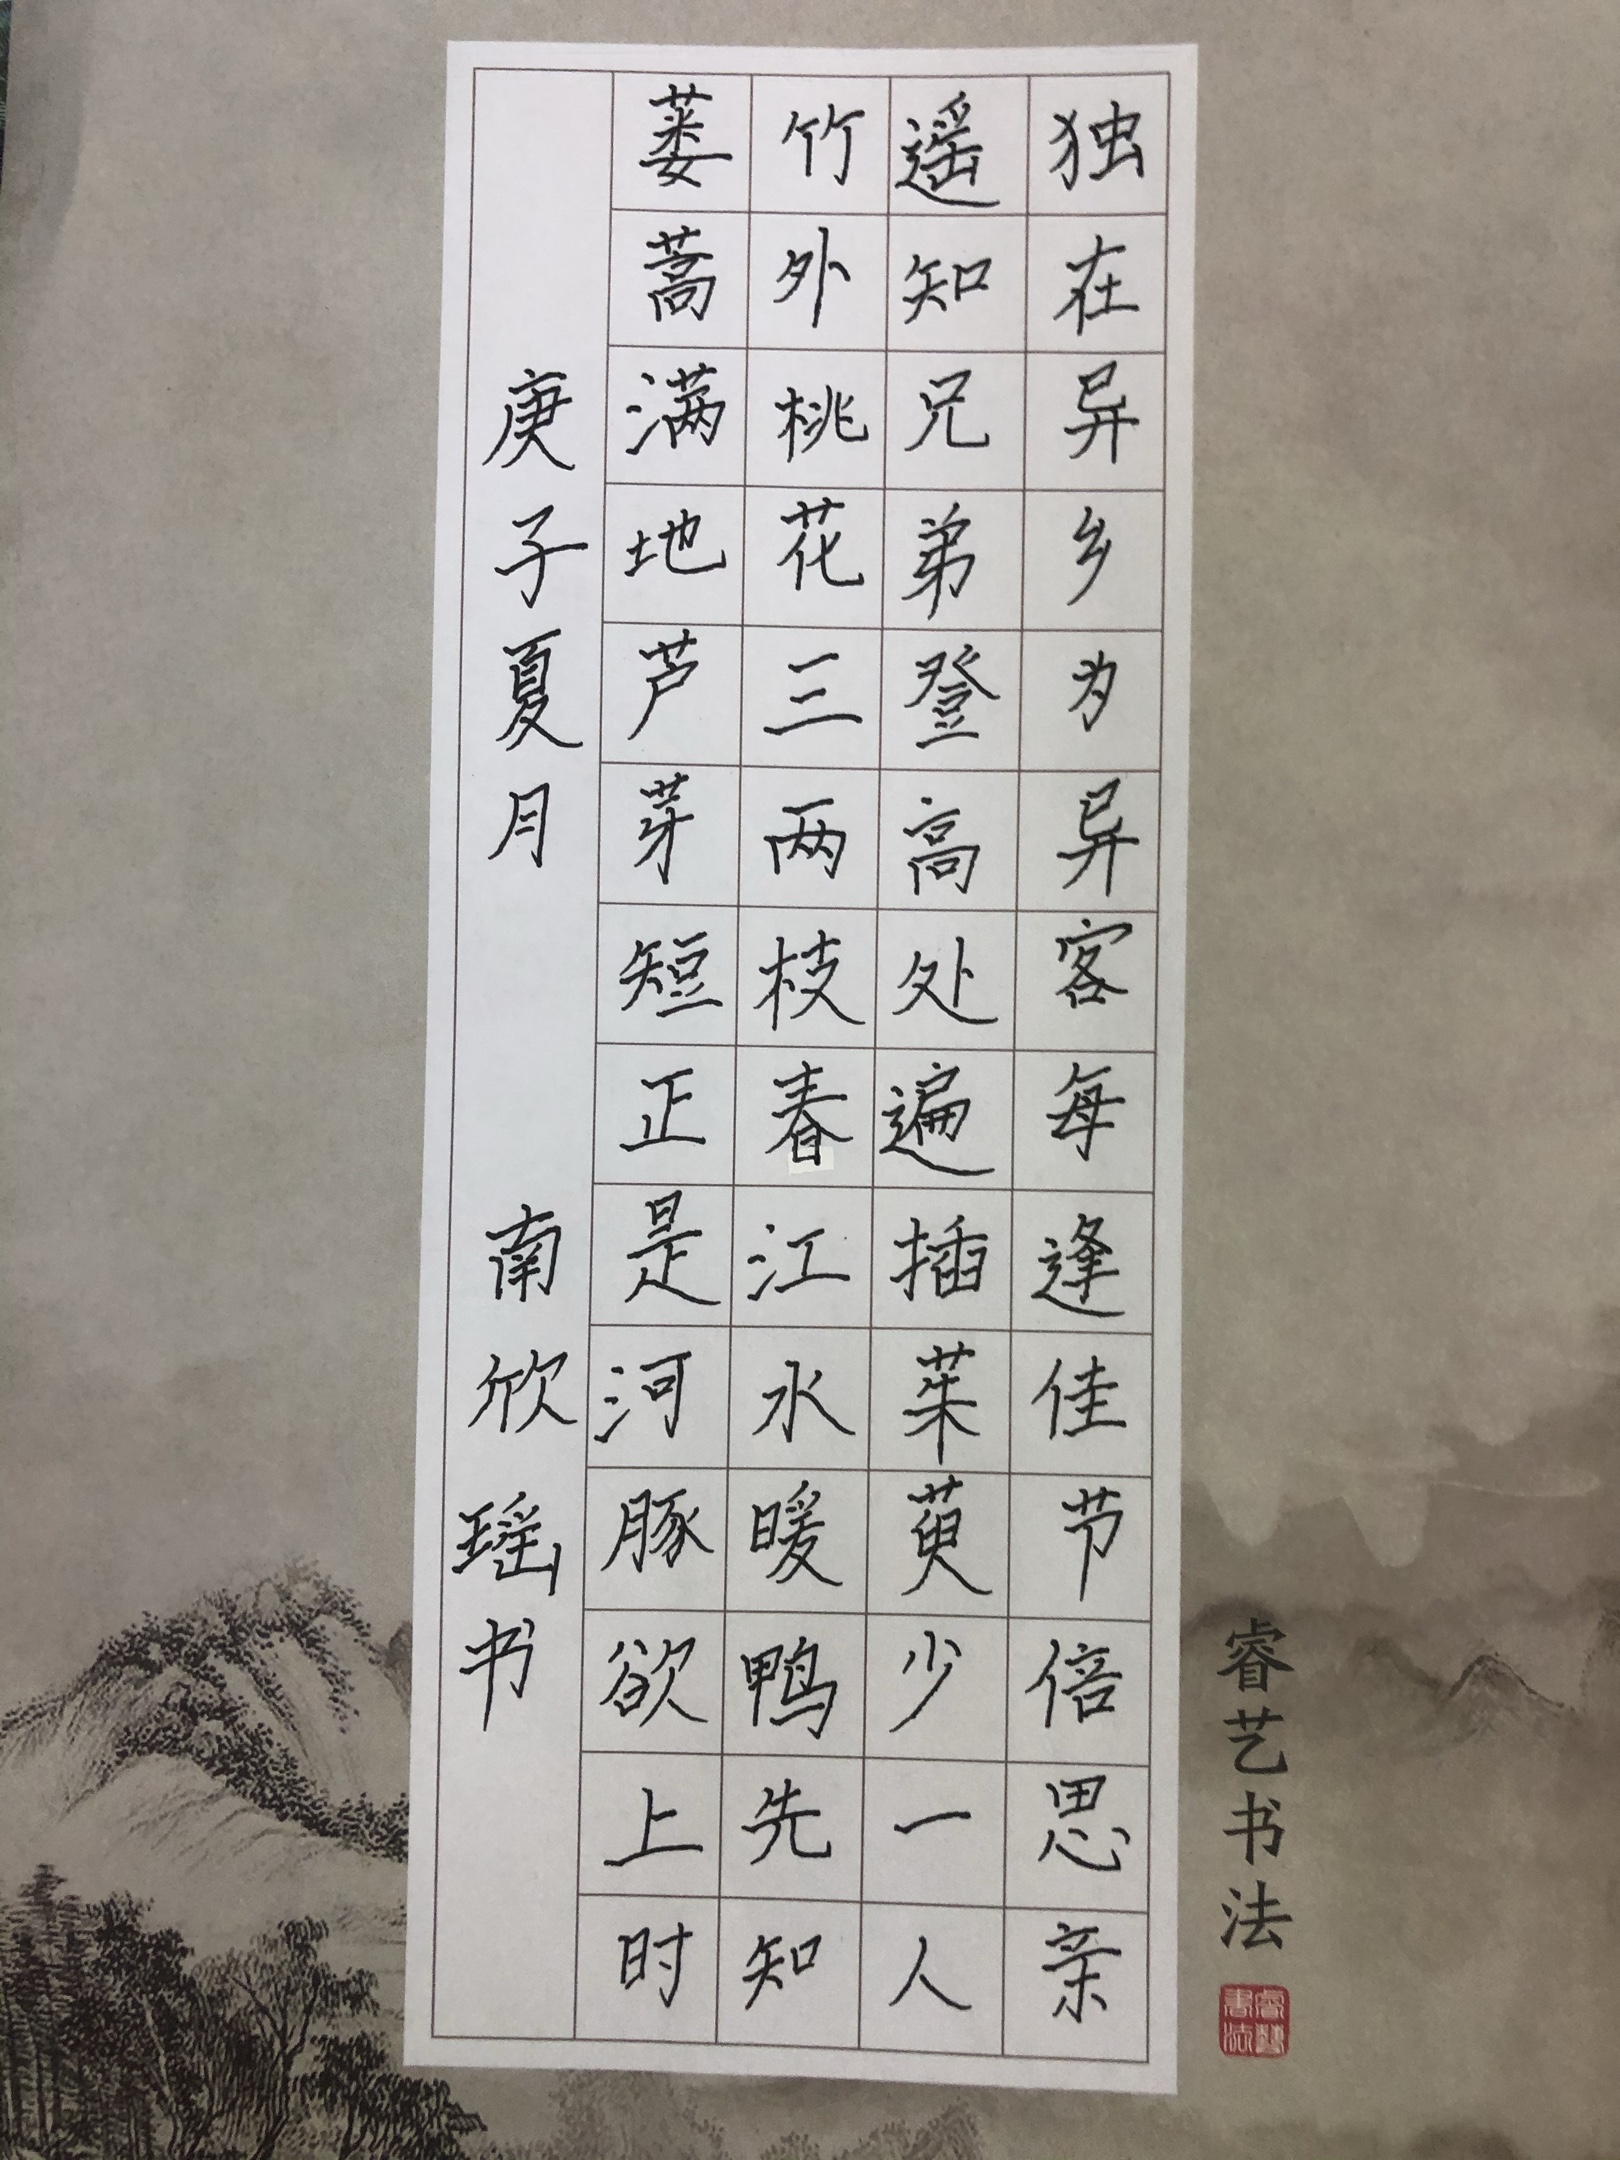 独在异乡为异客每逢佳节倍思亲
遥知兄弟登高处遍插茱萸少一人
竹外桃花三两枝春江水暖鸭先知
蒌蒿满地芦芽短正是河豚欲上时
庚子夏月 南欣瑶书
睿艺书法
睿艺書法